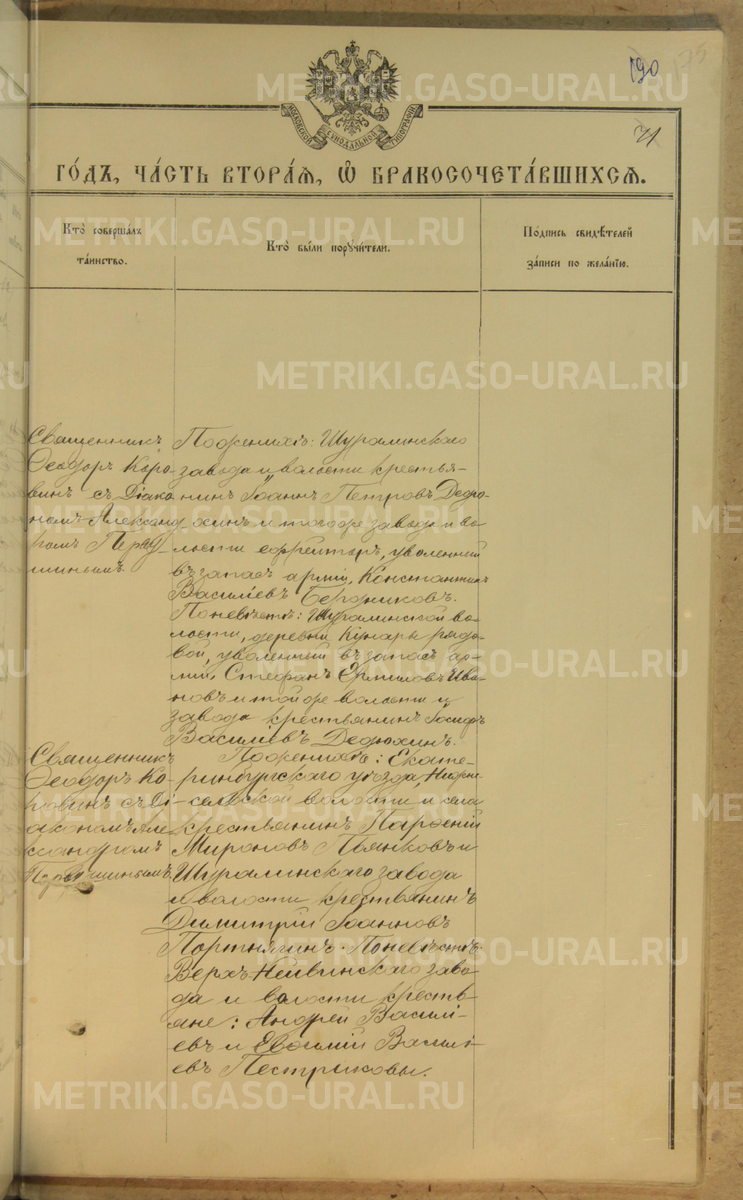 190 175
71
МОСКОВСКОЙ СѴНОДАЛЬНОЙ ТИПОГРАФІИ
ГО́ДЪ, ЧА́СТЬ ВТОРА́Я, Ѡ БРАКОСОЧЕТА́ВШИХСЯ.
Кто̀ соверша́лъ
та́инство.
Кто̀ бы́ли поручи́тели.
По́дпись свидѣ́телей
за́писи по жела́нію.
Священникъ
Ѳеодоръ Коро-
винъ съ Діако-
номъ Александ-
ромъ Перву-
шинымъ.
По женихѣ: Шуралинскаго
завода и волости крестья-
нинъ Іоаннъ Петровъ Дедю-
хинъ и того же завода и во-
лости ефрейторъ, уволенный
въ запасъ арміи, Константинъ
Василіевъ Бердниковъ.
По невѣстѣ: Шуралинской во-
лости, деревни Кунары рядо-
вой, уволенный въ запасъ ар-
міи, Стефанъ Ермиловъ Ива-
новъ и той же волости и
завода крестьянинъ Іосифъ
Василіевъ Дедюхинъ.
Священникъ
Ѳеодоръ Ко-
ровинъ съ Ді-
акономъ Але-
ксандромъ
Первушинымъ.
По женихѣ: Екате-
ринбургскаго уѣзда,
сельской волости и села
крестьянинъ Парѳеній
Мироновъ Пьянковъ и
Шуралинскаго завода
и волости крестьянинъ
Димитрій Іоанновъ
Портнягинъ. По невѣстѣ:
Верхъ-Нейвинскаго заво-
да и волости крестья-
яне: Андрей Василі-
евъ и Евѳимій Василі-
евъ Пестриковы.
METRIKI.GASO-URAL.RU